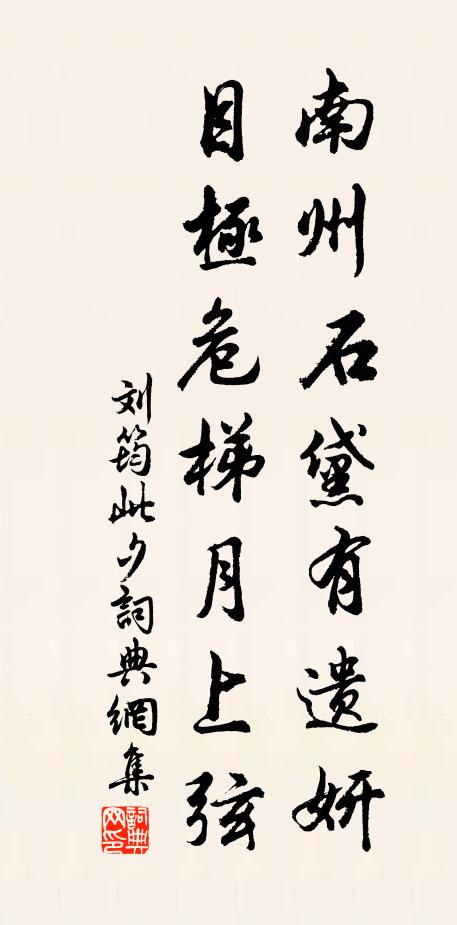 南州石黛有遗妍
目極危梯月上弦
刘筠此夕詞典網集
詞典網印